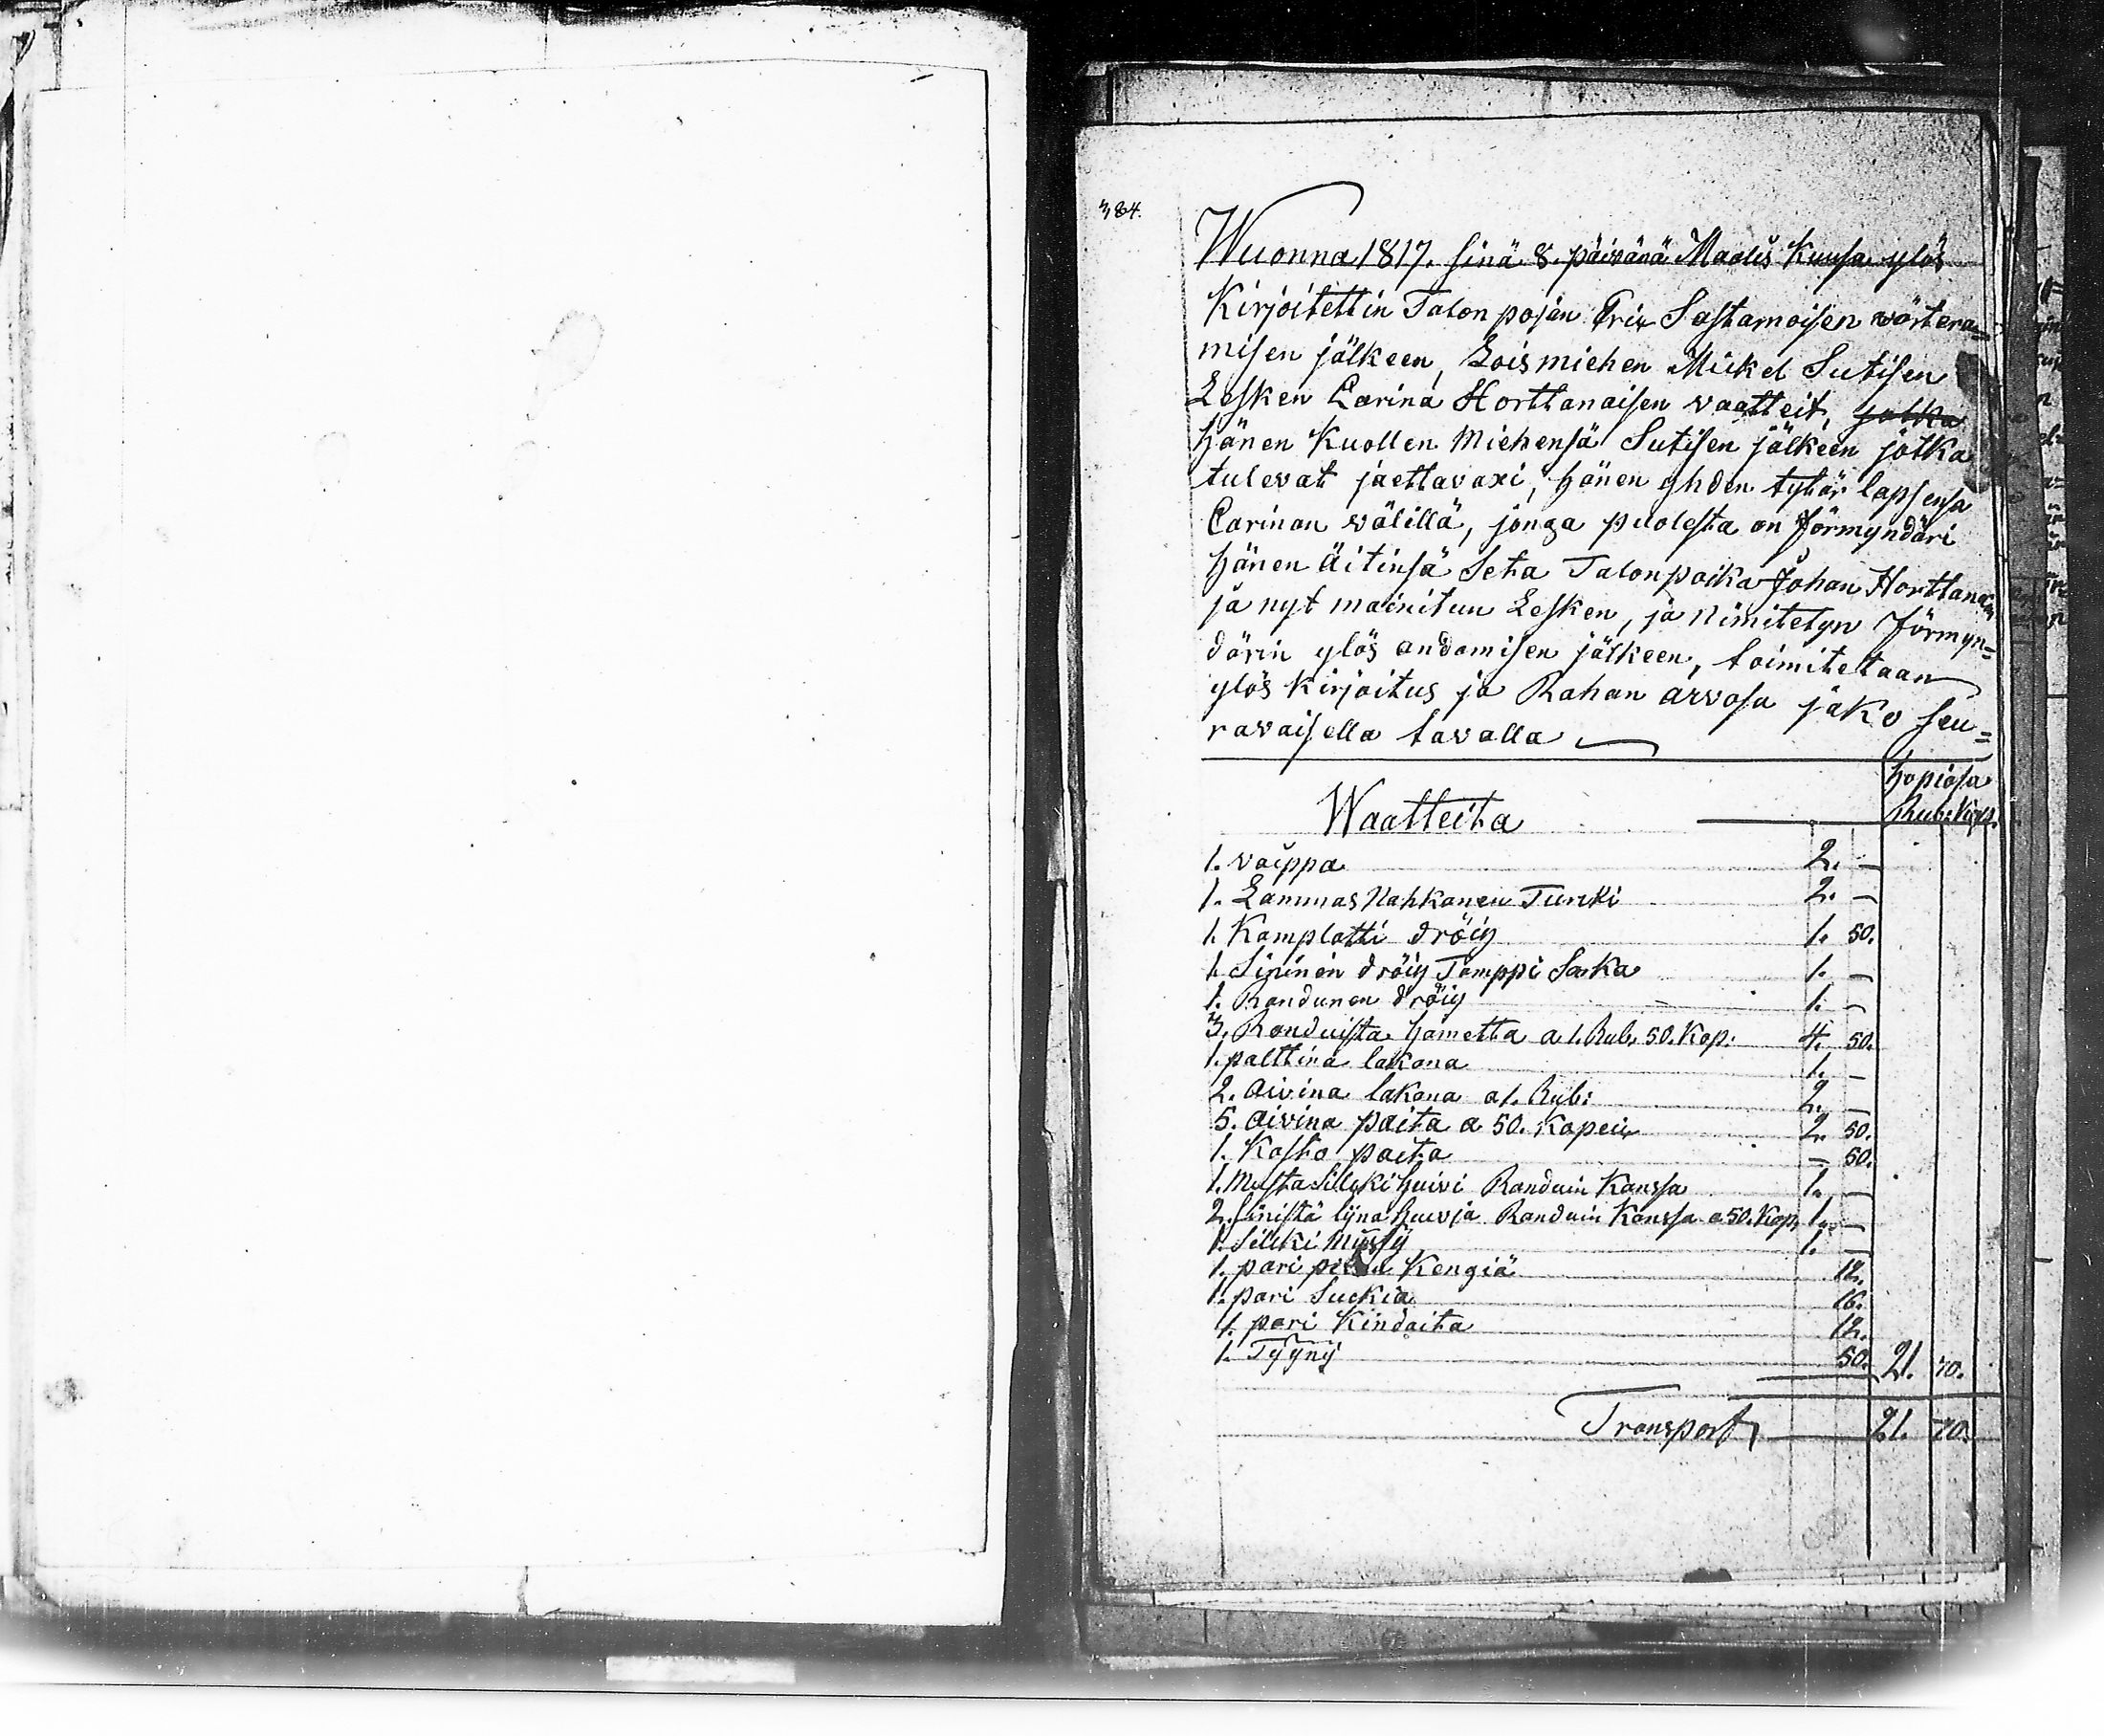 384.
Wuonna 1817. sinä 8. päivänä Maalis Kuusa ylös
Kirjoitettin Talon pojan Eric Sastamoisen wärtera=
misen jälkeen, Loismiehen Mickel Sutisen
Lesken Carina Horttanaisen vaatteit, jotka
hänen Kuollen Miehensä Sutisen jälkeen jotka
tulevat jaettavaxi, hänen yhden tytär lapsensa
Carinan välillä, jonga puolesta on förmyndäri
hänen äitinsä Setä Talonpoika Johan Horttanain
ja nyt mainitun Lesken, ja Nimitetyn förmyn=
därin ylös andamisen jälkeen, toimitetaan
ylös kirjoitus ja Rahan arvosa jako seu=
ravaisella tavalla
hopiasa
Waatteita Rub: Kop.
1. vaippa 2. —
1. Lammas Nahkanen Turcki 2. —
1. Kamplotti dröiy 1. 50.
1. Sininen dröiy Tamppi Sarka 1. —
1. Randunen dröiy 1. —
3. Randuista hametta a 1. Rub. 50. Kop. 4. 50.
1. palttina lakana 1. —
2. Aivina lakana a 1. Rub: 2. —
5. Aivina paita a 50. Kopeix 2. 50.
1. Kasto paita — 50.
1. Musta Silcki huivi Randuin Kanssa 1. —
2. Sinistä lijna huivia Randuin Kanssa a 50. Kop. 1. —
1. Silcki Myssy 1. —
1. pari Kengiä 12.
1. pari Suckia 16.
1. pari Kindaita 12.
1. Tyyny 50. 21. 70.
Transport 21. 70.